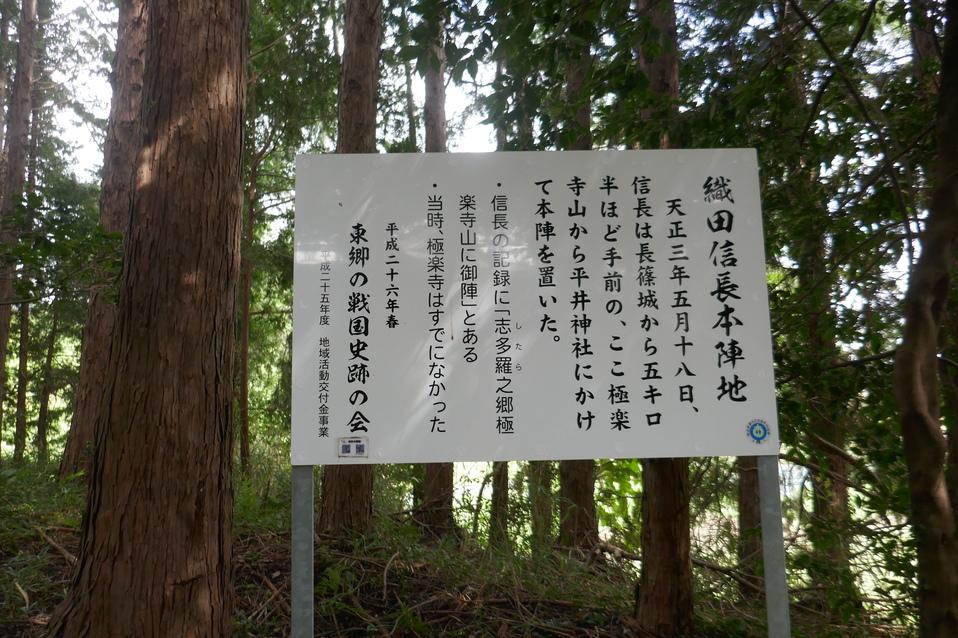 織田信長本陣地
天正三年五月十八日、
信長は長篠城から五キロ
半ほど手前の、ここ極楽
寺山から平井神社にかけ
て本陣を置いた。
・信長の記録に「志多羅之郷極
したら
楽寺山に御陣」とある
・当時、極楽寺はすでになかった
平成二十六年春
東郷の戦国史跡の会
平成二十五年度 地域活動交付金事業